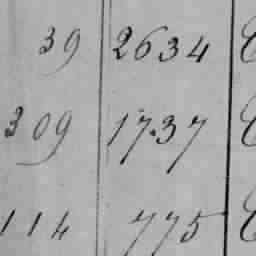 39 2634
309 1737
114 775